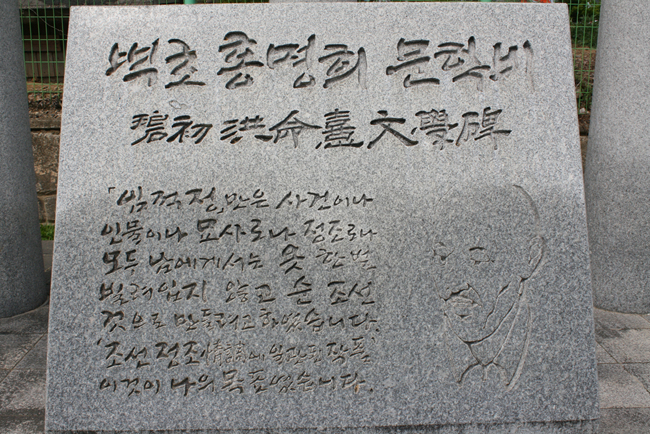 벽초 홍명희 문학비
碧初 洪命憙 文學碑
「임꺽정」만은 사건이나
인물이나 묘사로나 정조로나
모두 남에게서는 옷 한벌
빌려 입지 않고 순 조선
것으로 만들려고 하였습니다.
'조선 정조(情調)에 일관된 작품'
이것이 나의 목표였습니다.